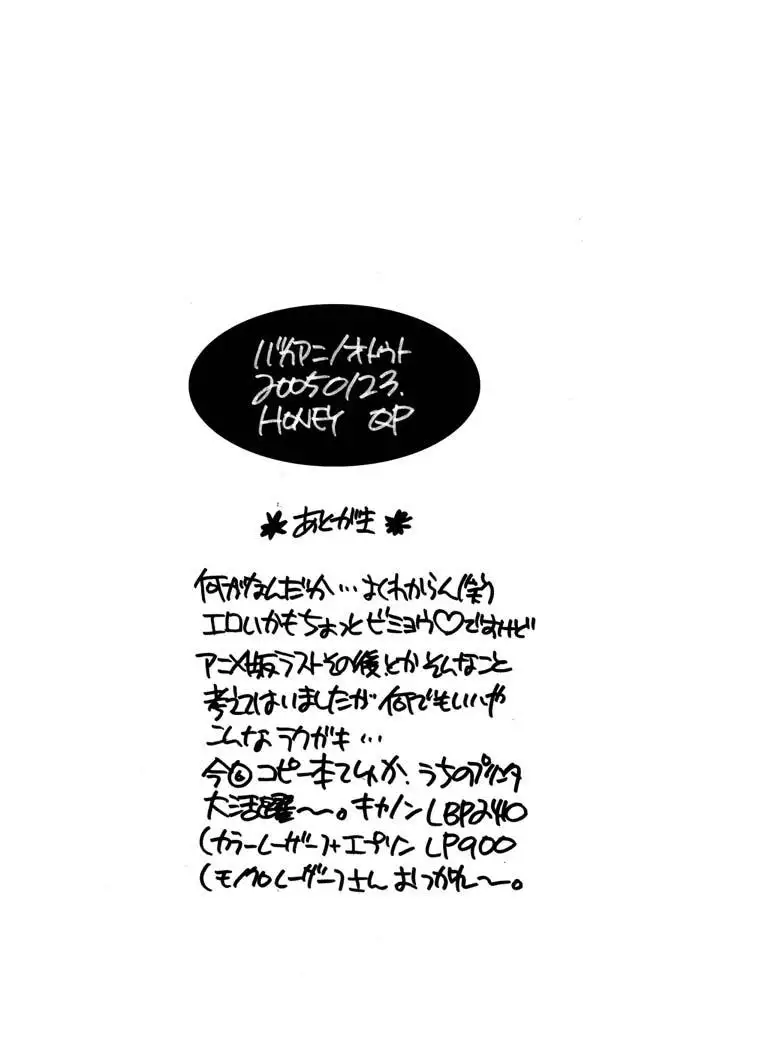 バカアニノオトウト
20050123.
HONEY QP
＊あとがき＊
何がなんだか…よくわからん(笑)
エロいかもちょっとビミョウ♡ですけど
アニメ版ラストその後とかそんなこと
考えてはいましたが何でもいいや
こんなラクガキ…
今回コピー本でしたが、うちのプリンタ
大活躍〜。キャノンLBP2410
(カラーレーザー)+エプソン LP900
(モノクロレーザー)さん おつかれ〜。